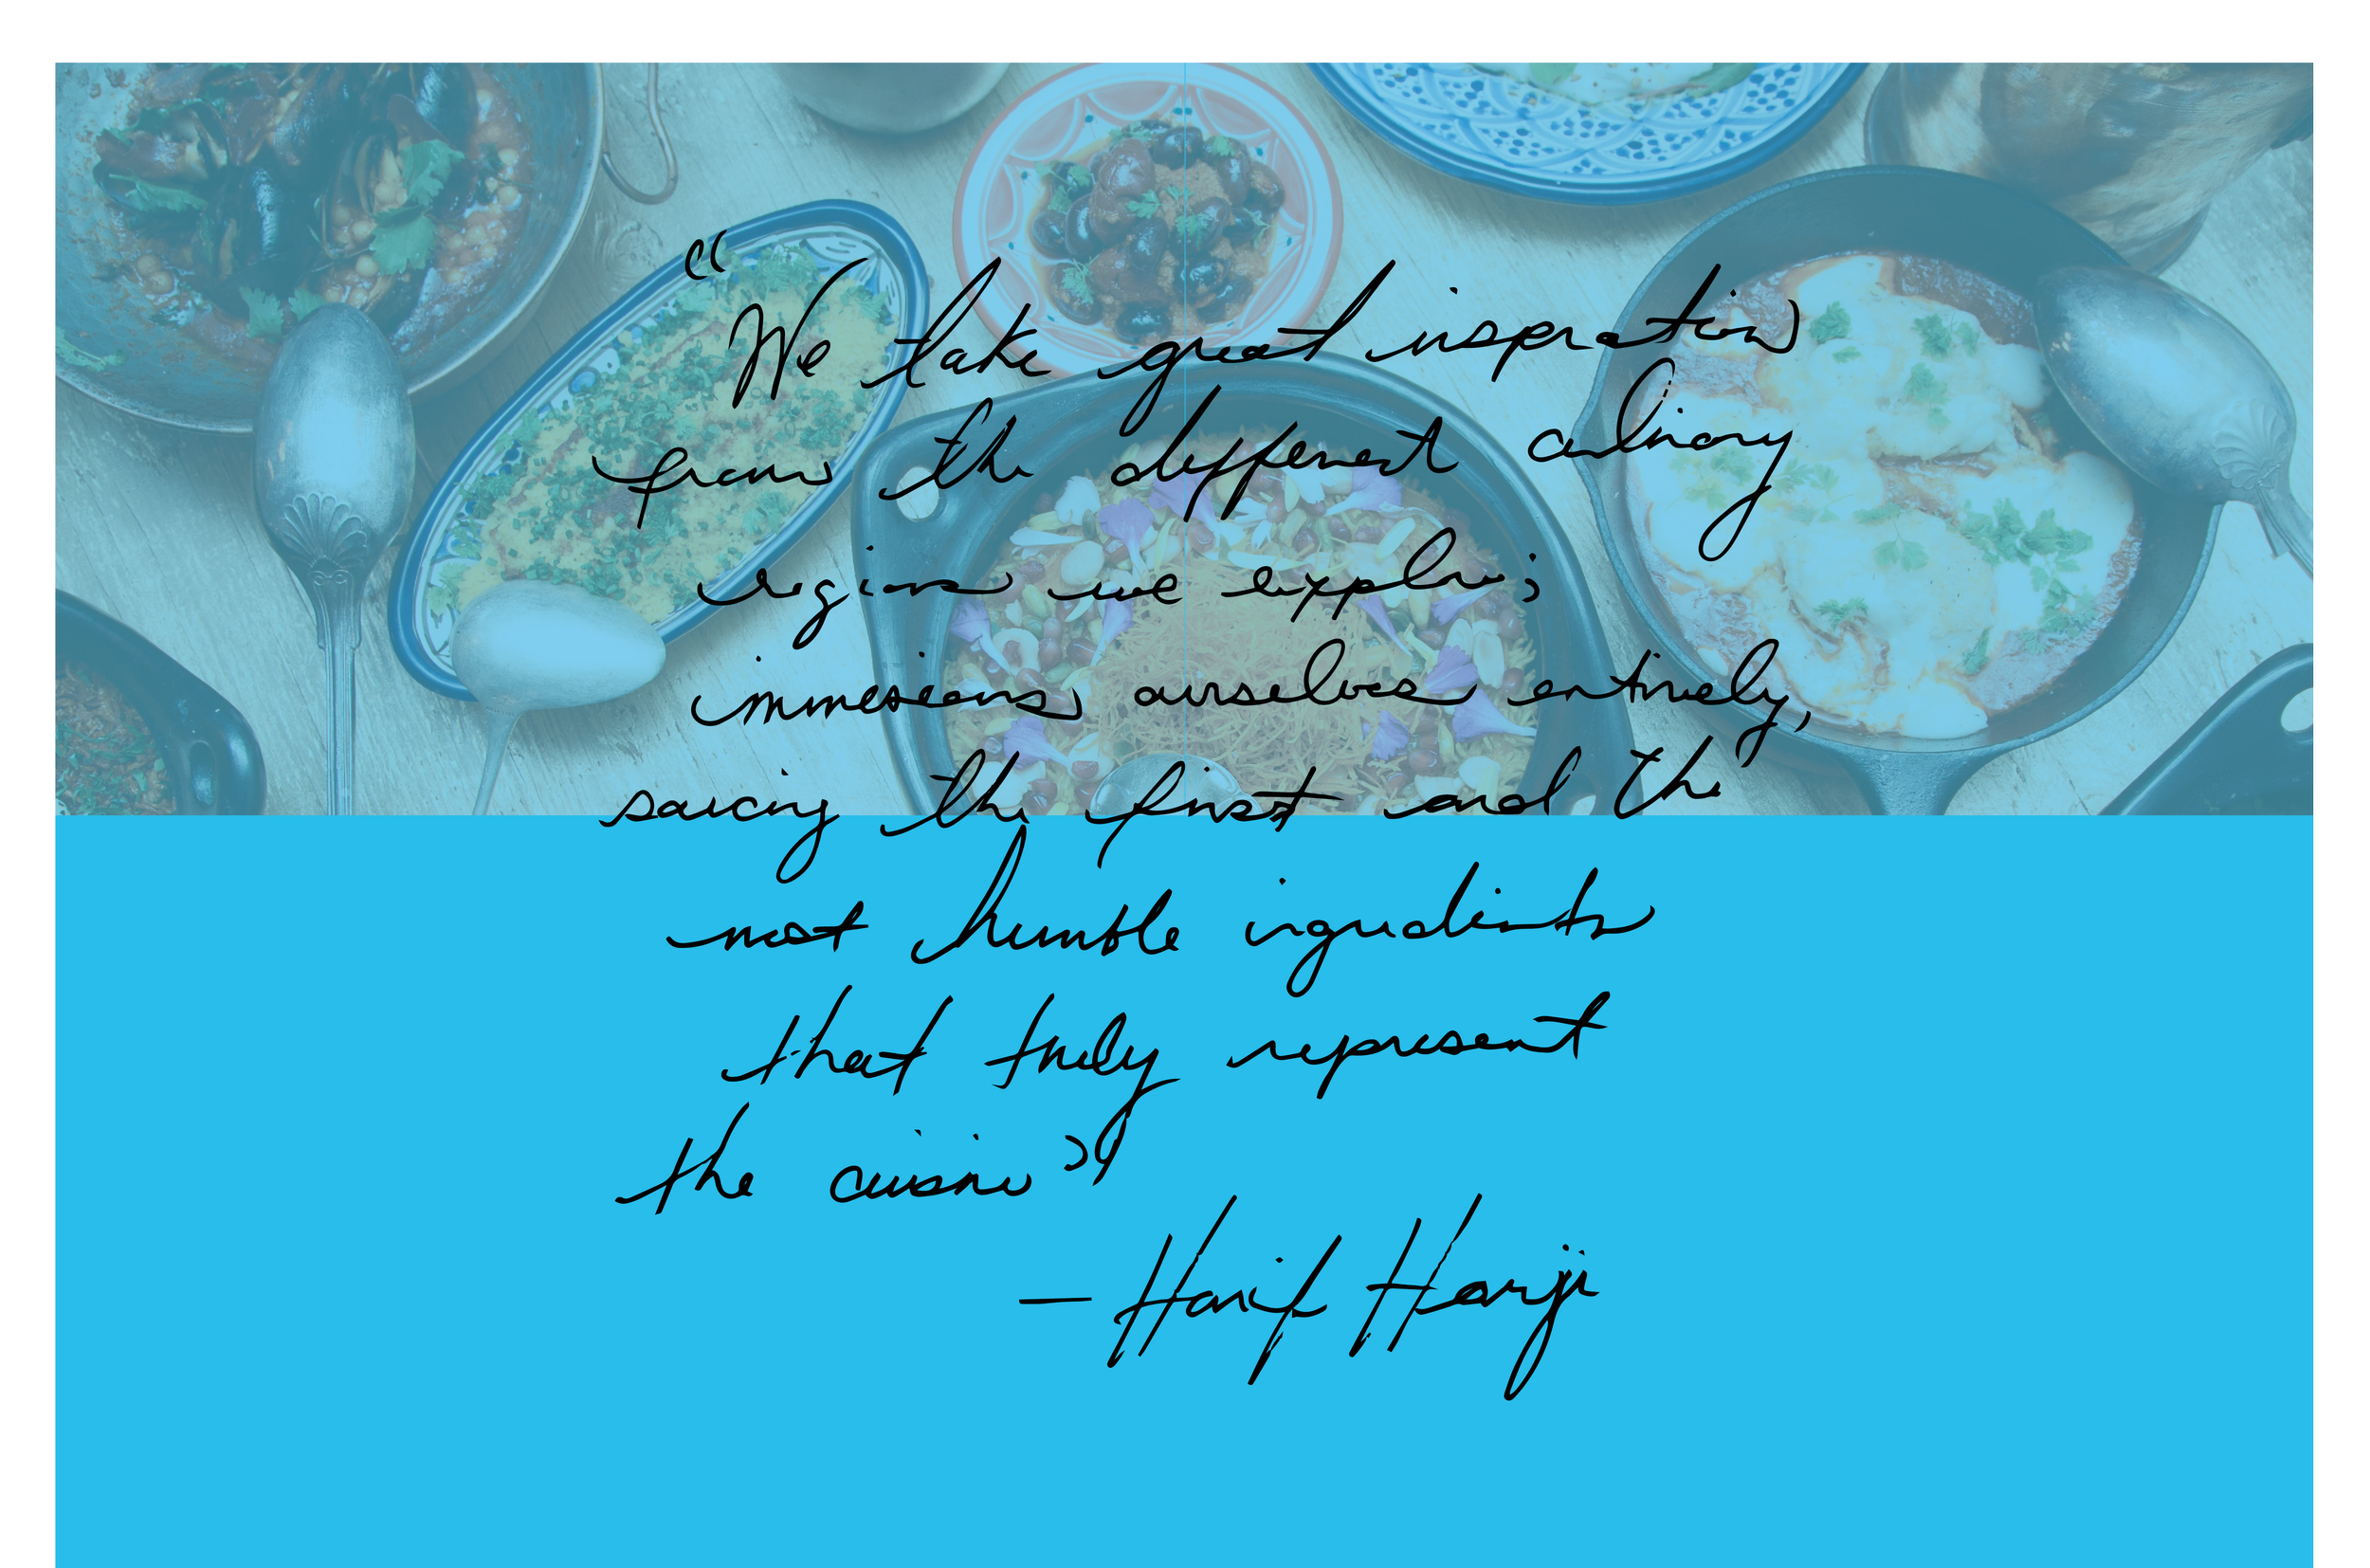 “We take great inspiration
from the different culinary
regions we explore;
immersing ourselves entirely,
sourcing the finest and the
most humble ingredients
that truly represent
the cuisine”
— Hanif Harji